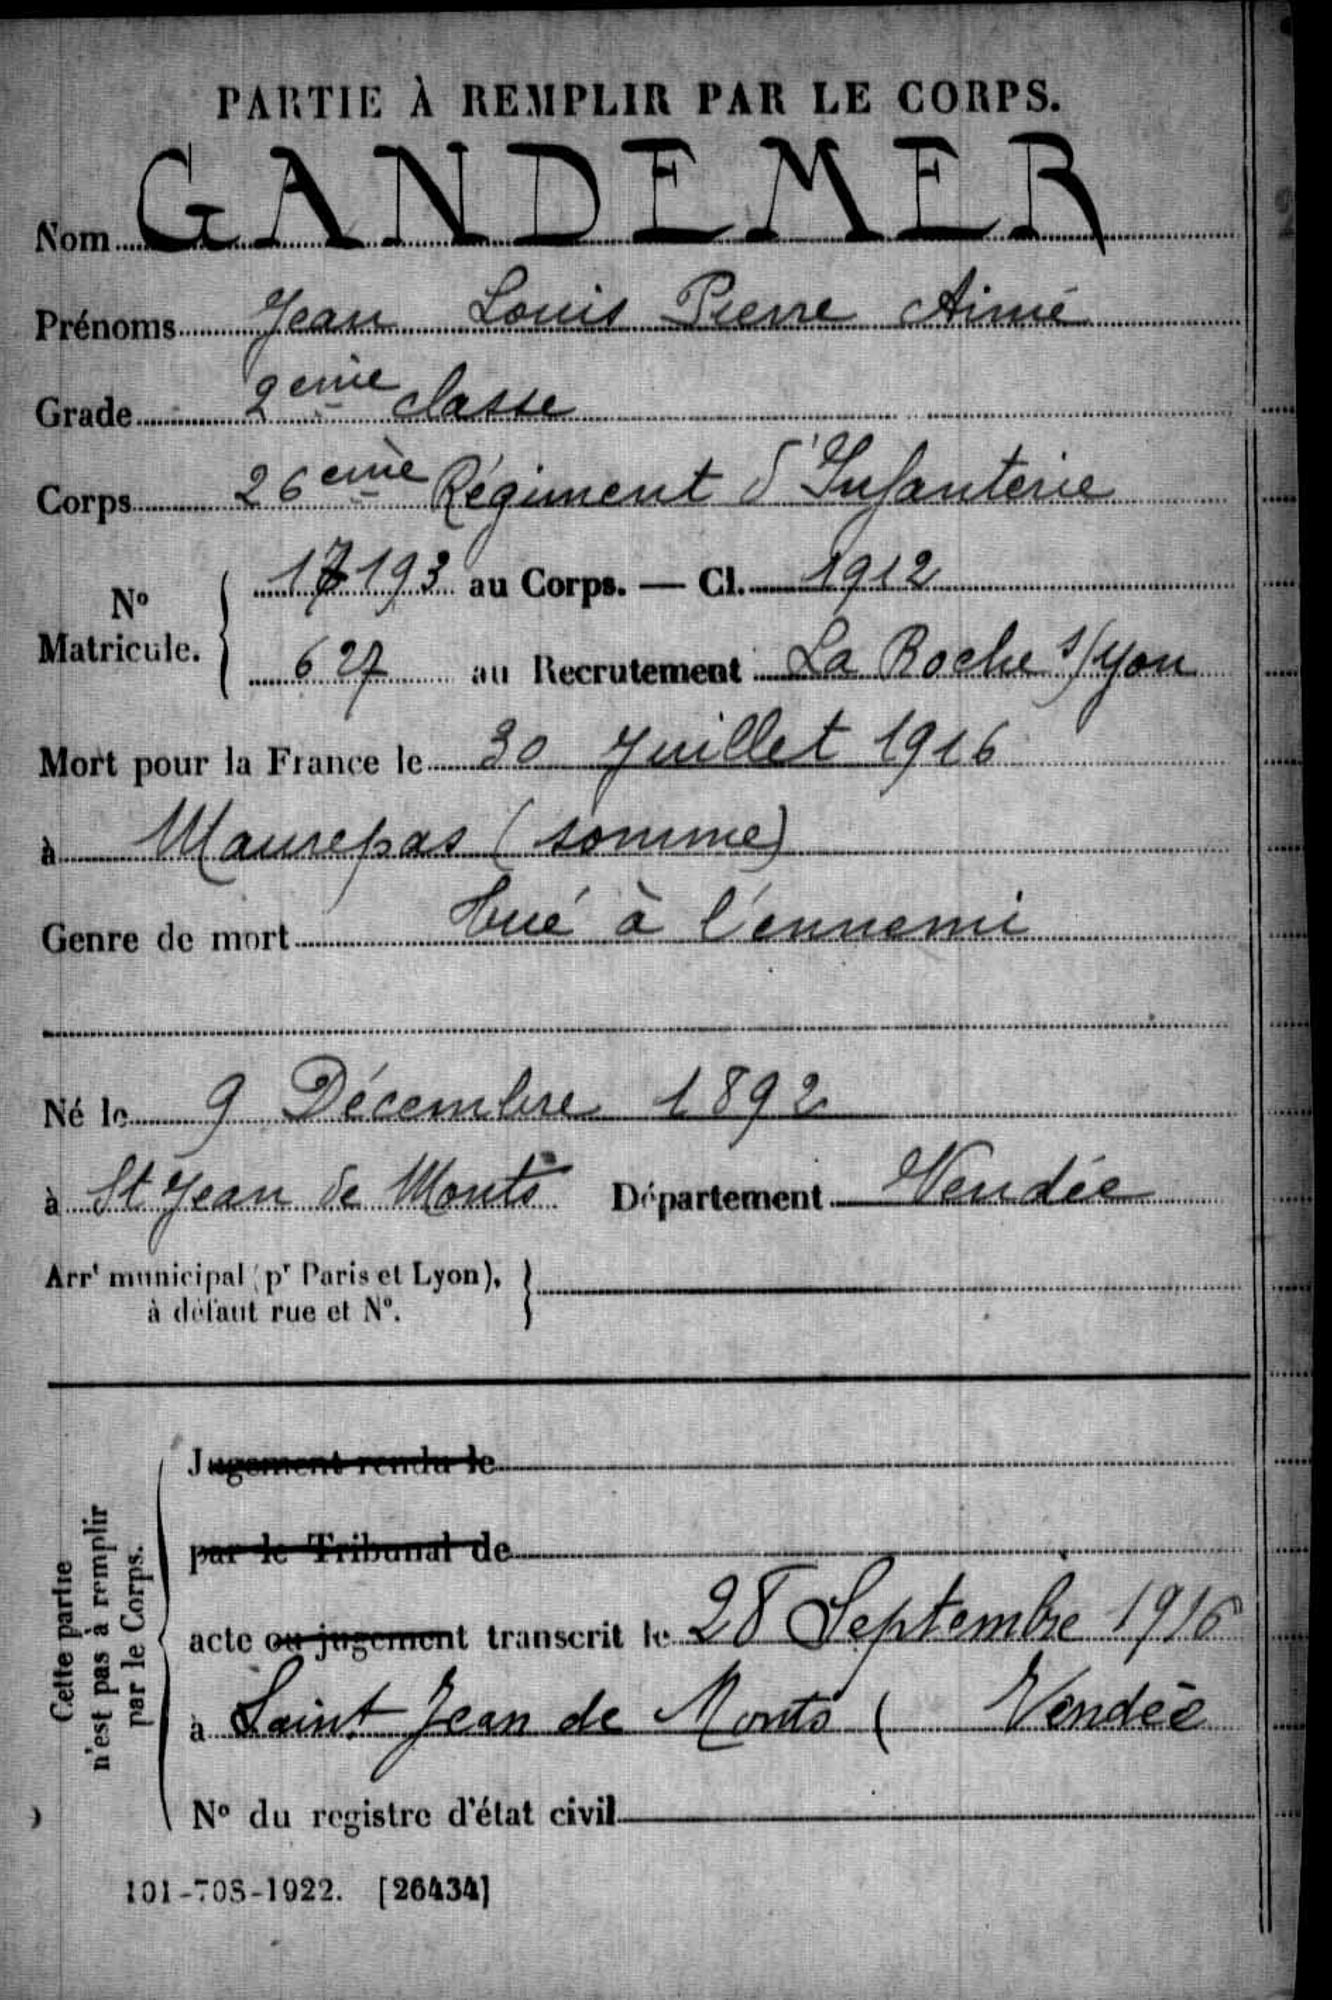 PARTIE À REMPLIR PAR LE CORPS.
Nom GANDEMER
Prénoms Jean Louis Pierre Aimé
Grade 2ème classe
Corps 26ème Régiment d'Infanterie
N° Matricule. { 17193 au Corps. — Cl. 1912
627 au Recrutement La Roche s/yon
Mort pour la France le 30 Juillet 1916
à Maurepas (somme)
Genre de mort tué à l'ennemi
Né le 9 Décembre 1892
à St Jean de Monts Département Vendée
Arrt municipal (pr Paris et Lyon), }
à défaut rue et N°.
Cette partie n'est pas à remplir par le Corps.
Jugement rendu le
par le Tribunal de
acte ou jugement transcrit le 28 Septembre 1916
à Saint Jean de Monts ( Vendée
N° du registre d'état civil
101-708-1922. [26434]